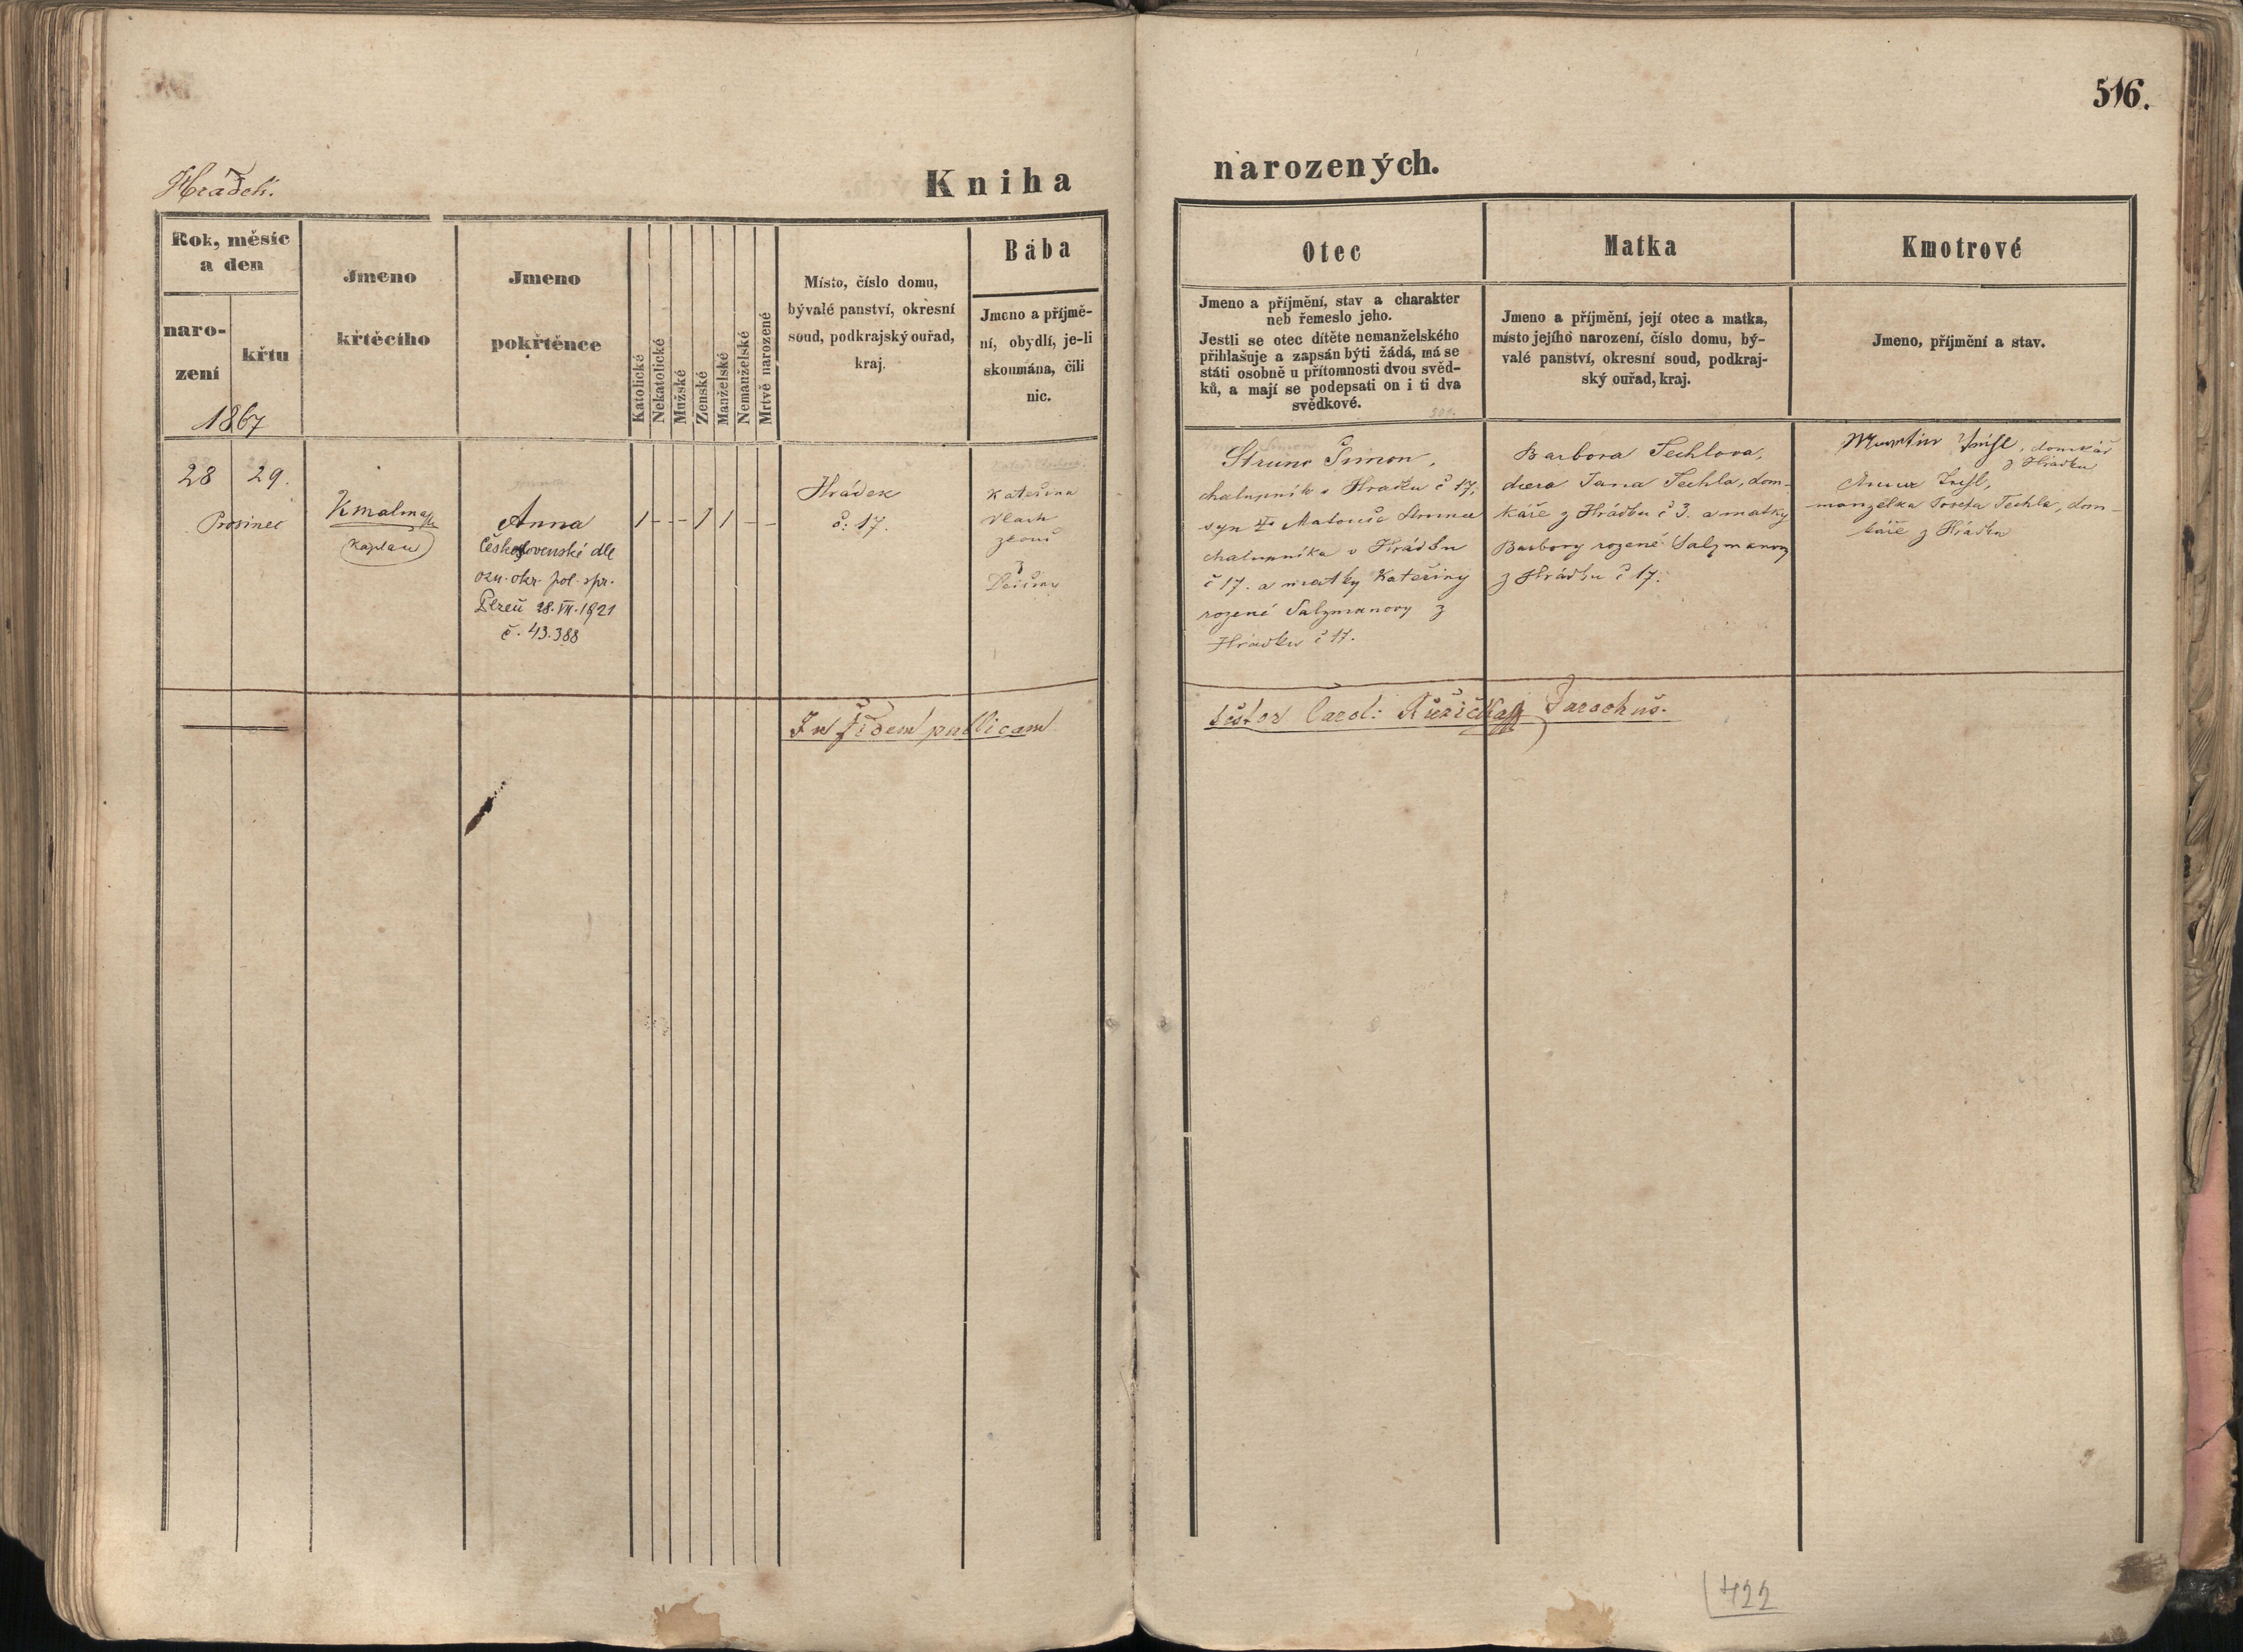 516.
Hrádek.
Kniha narozených.
Rok, měsíc
a den
naro-
zení
křtu
1867
Jmeno
křtěcího
Jmeno
pokřtěnce
Katolické
Nekatolické
Mužské
Ženské
Manželské
Nemanželské
Mrtvě narozené
Místo, číslo domu,
bývalé panství, okresní
soud, podkrajský ouřad,
kraj.
Bába
Jmeno a příjmě-
ní, obydlí, je-li
skoumána, čili
nic.
Otec
Jmeno a příjmění, stav a charakter
neb řemeslo jeho.
Jestli se otec dítěte nemanželského
přihlašuje a zapsán býti žádá, má se
státi osobně u přítomnosti dvou svěd-
ků, a mají se podepsati on i ti dva
svědkové.
Matka
Jmeno a příjmění, její otec a matka,
místo jejího narození, číslo domu, bý-
valé panství, okresní soud, podkraj-
ský ouřad, kraj.
Kmotrové
Jmeno, příjmění a stav.
28 29.
Prosinec
Kmalman
Kaplan
Anna
Československé dle
ozn. okr. pol. spr.
Plzeň 28. VII. 1921
č. 43.388
1 - - 1 1 - -
Hrádek
č: 17.
Kateřina
Vlach
zkouš
z
Strunc Šimon,
chalupník v Hrádku č 17,
syn Matouše Strunce
chalupníka v Hrádku
č 17. a matky Kateřiny
rozené Salzmanovy z
Hrádku č 17.
Barbora Techlova,
dcera Jana Techla, dom-
káře z Hrádku č 3. a matky
Barbory rozené Salzmanovy
z Hrádku č 17.
Martin Trißl, domkář
z Hrádku
Anna Trißl,
manželka Josefa Techla, dom-
káře z Hrádku
In fidem publicam
Nestor Carol: Růžička Parochus.
422